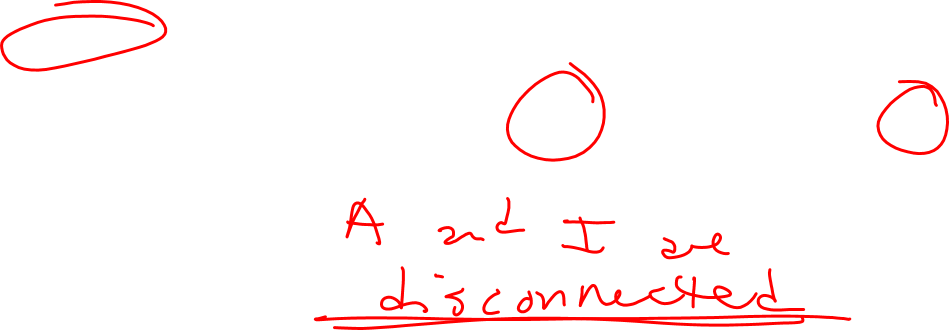 A and I are
disconnected